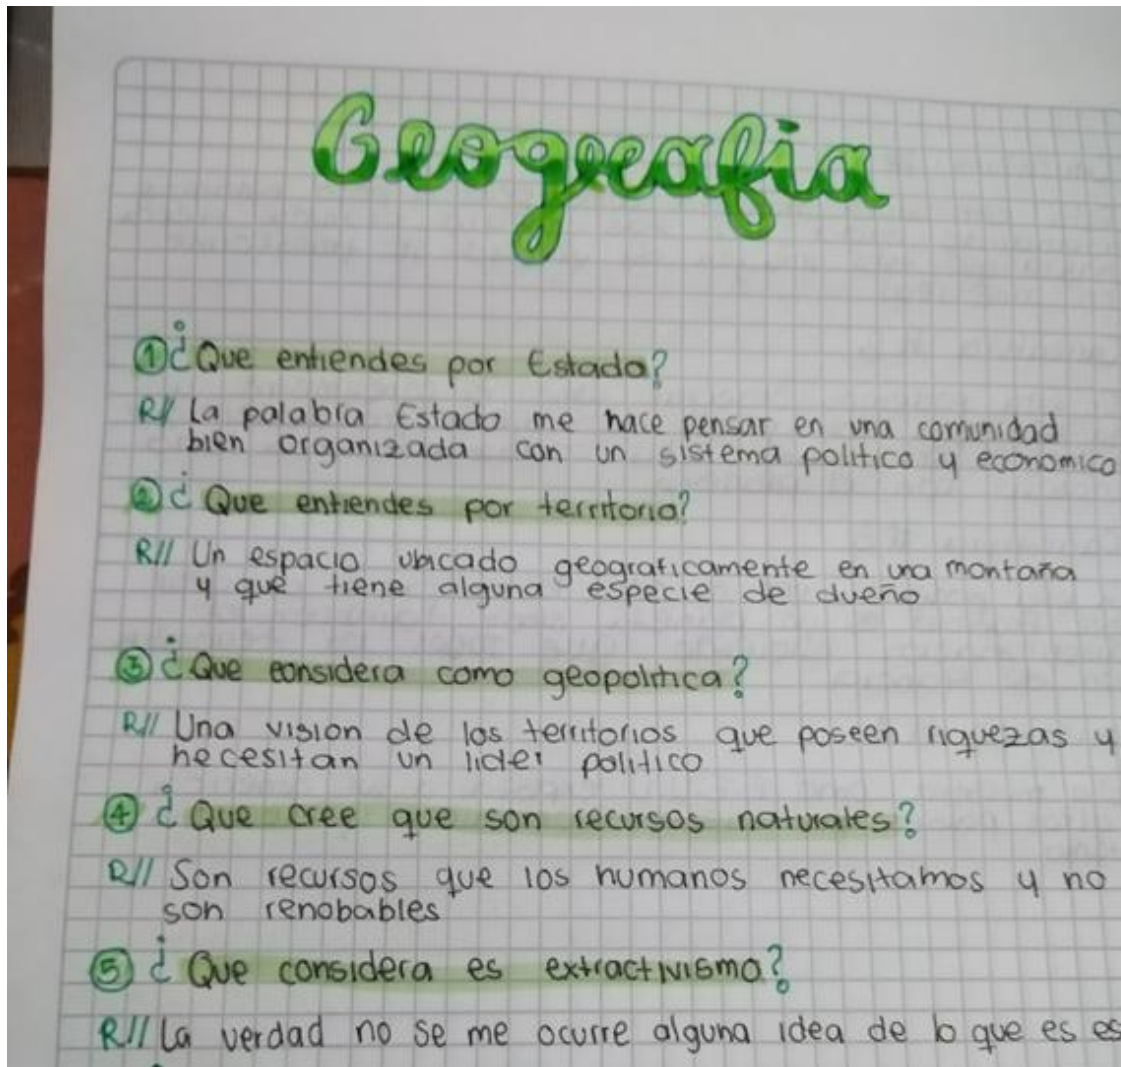 Geografia
① ¿Que entiendes por Estado?
R// La palabra Estado me hace pensar en una comunidad
bien organizada con un sistema politico y economico
② ¿Que entiendes por territorio?
R// Un espacio ubicado geograficamente en una montaña
y que tiene alguna especie de dueño
③ ¿Que considera como geopolitica?
R// Una vision de los territorios que poseen riquezas y
necesitan un lider politico
④ ¿Que cree que son recursos naturales?
R// Son recursos que los humanos necesitamos y no
son renobables
⑤ ¿Que considera es extractivismo?
R// La verdad no se me ocurre alguna idea de lo que es es